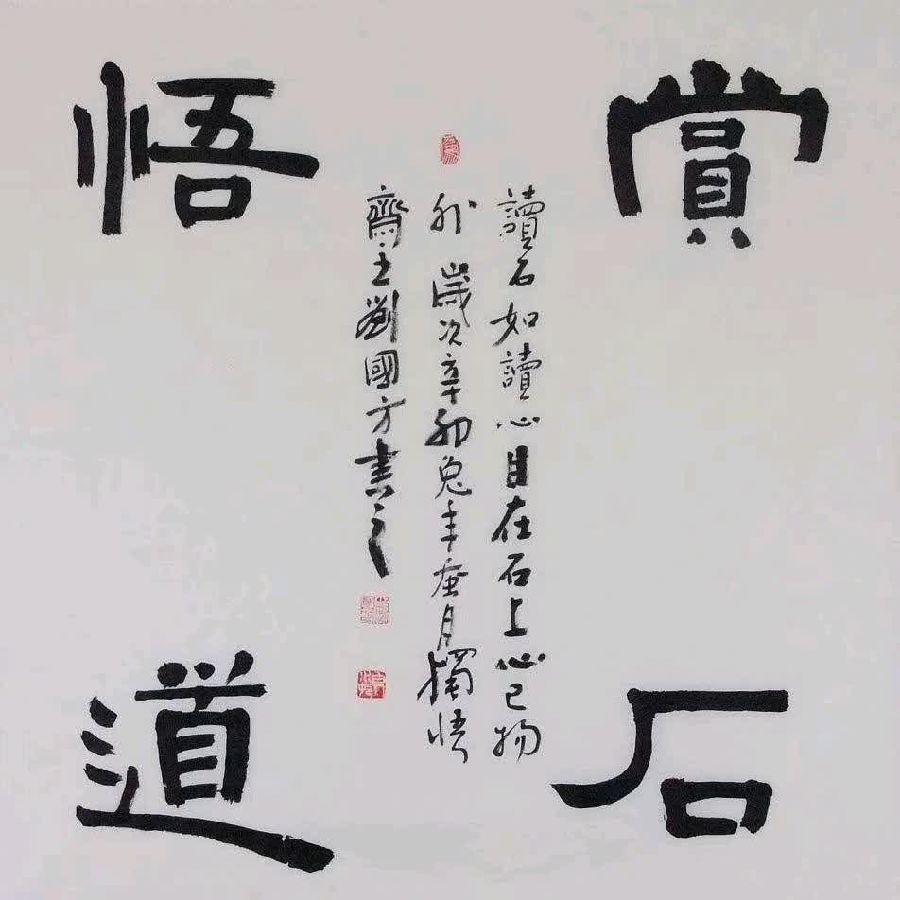 賞石
讀石如讀心目在石上心已物
外 歲次辛卯兔年月獨悟
齋主劉國方書之
悟道